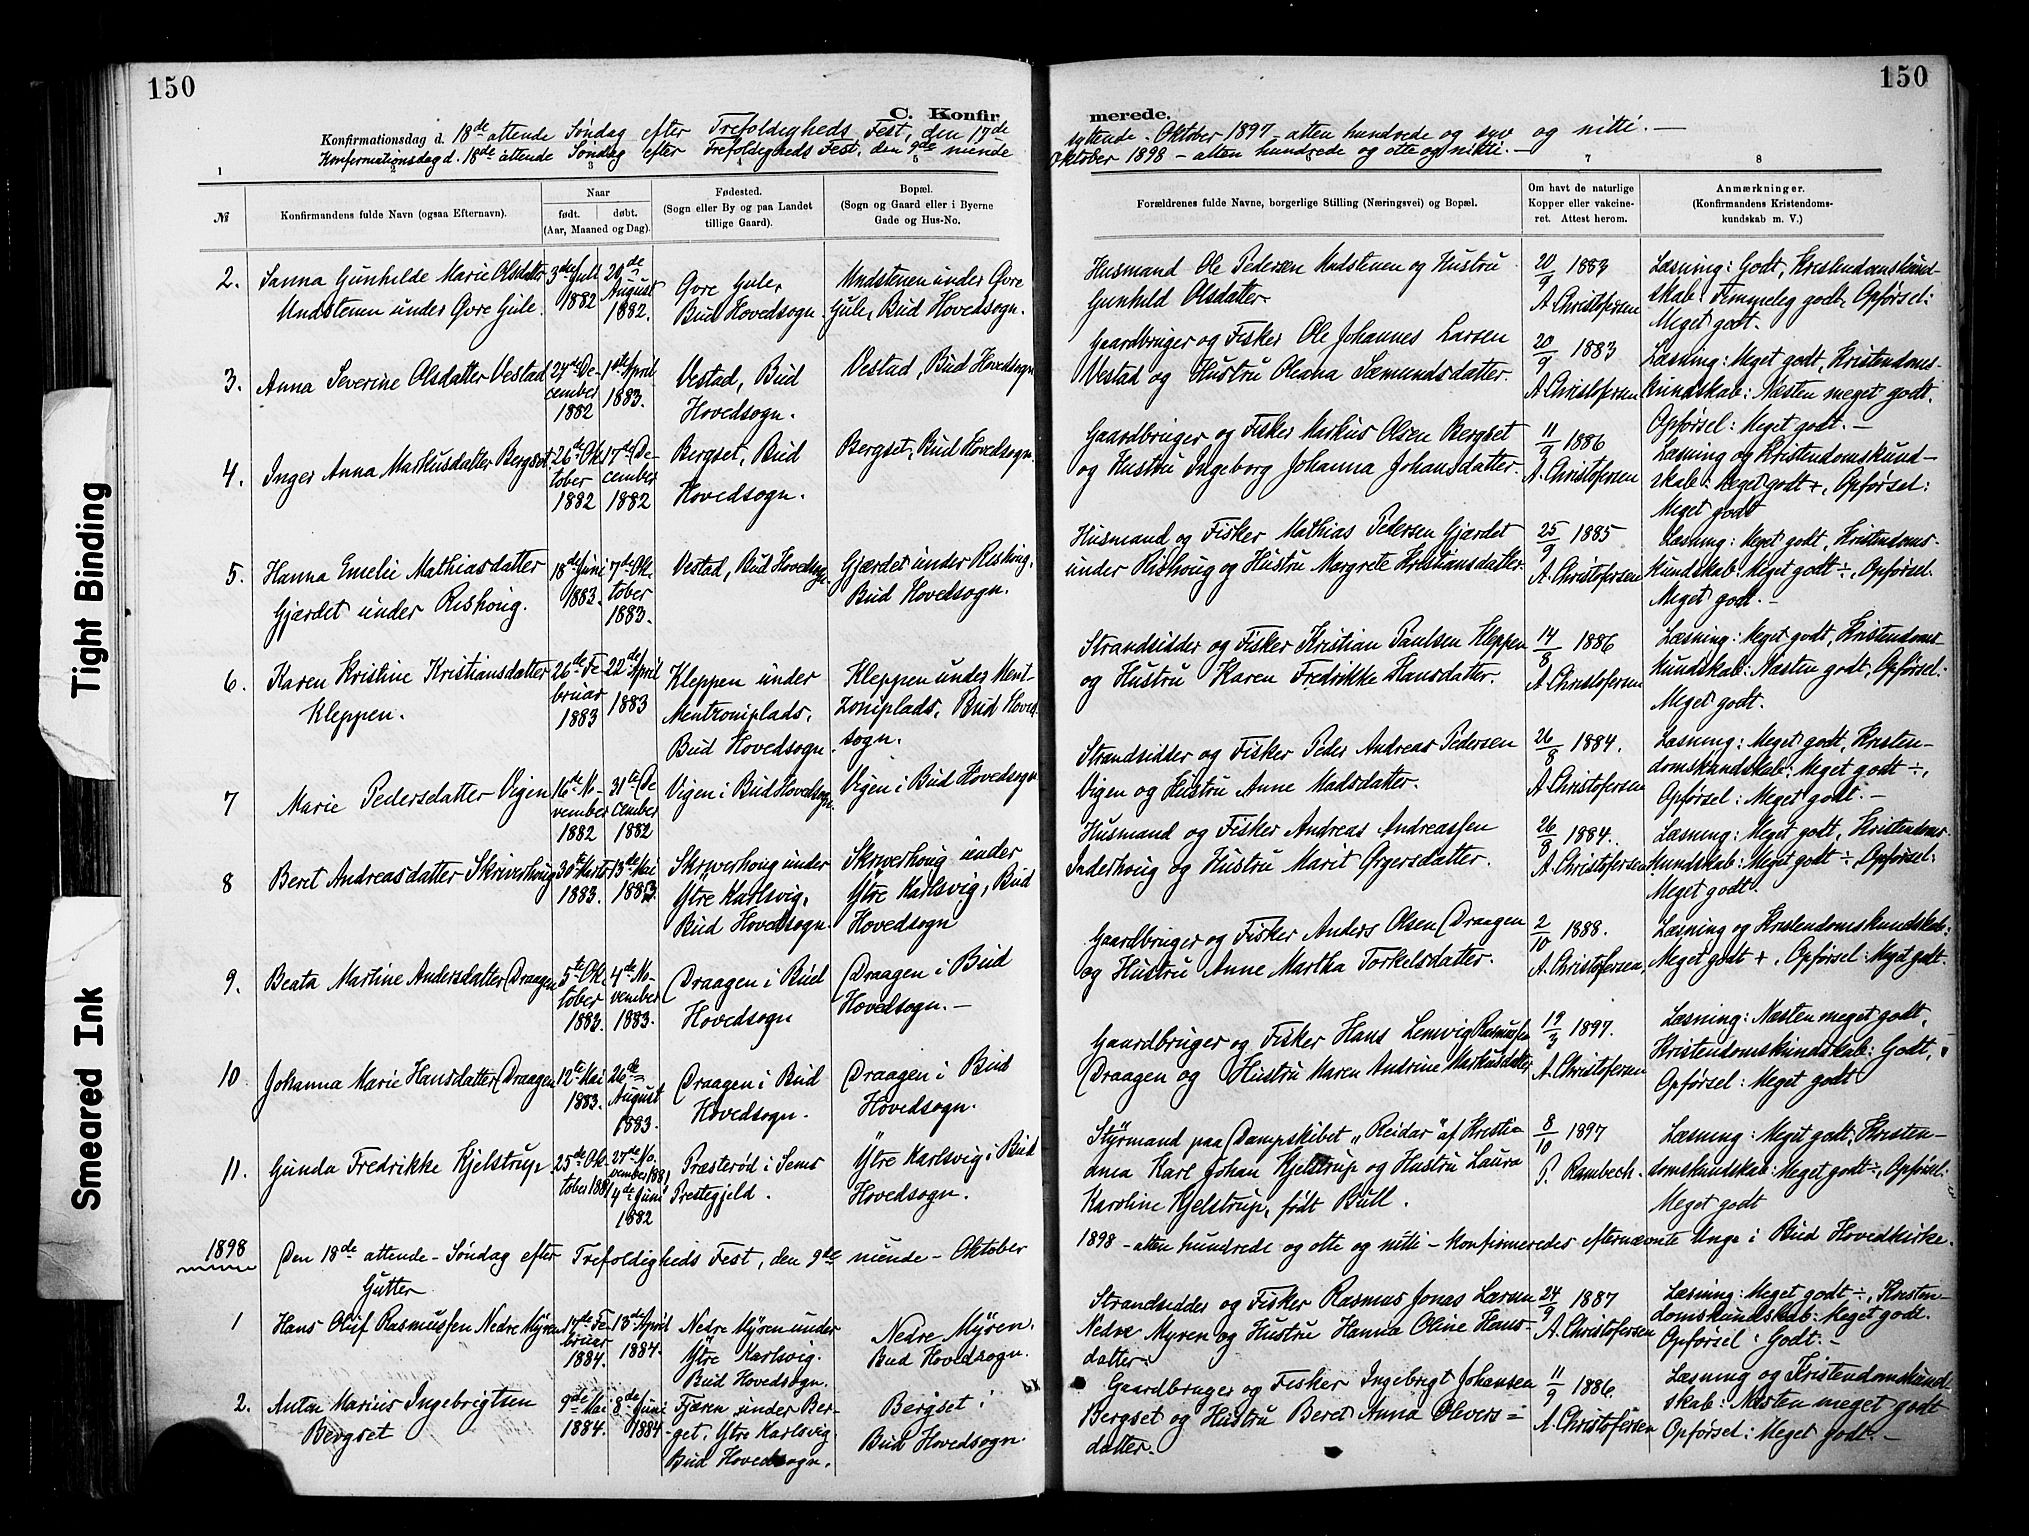 150
150
C. Konfirmerede.
Konfirmationsdag d. 18de attende Søndag efter Trefoldigheds Fest, den 17de syttende Oktober 1897 - atten hundrede og syv og nitti. -
Konfirmationsdag d. 18de attende Søndag efter Trefoldigheds Fest, den 9de niende Oktober 1898 - atten hundrede og otte og nitti. -
1 2 3 4 5 7 8
№
Konfirmandens fulde Navn (ogsaa Efternavn).
Naar
født. døbt.
(Aar, Maaned og Dag).
Fødested.
(Sogn eller By og paa Landet
tillige Gaard).
Bopæl.
(Sogn og Gaard eller i Byerne
Gade og Hus-No.
Forældrenes fulde Navne, borgerlige Stilling (Næringsvei) og Bopæl.
Om havt de naturlige
Kopper eller vakcine-
ret. Attest herom.
Anmærkninger.
(Konfirmandens Kristendoms-
kundskab m. V.)
2. Sanna Gunhilde Marie Olsdatter
Undstenen under Øvre Gule.
3de Juli
1882
20de
August
1882.
Øvre Gule,
Bud Hovedsogn.
Undstenen under Øvre
Gule, Bud Hovedsogn.
Husmand Ole Pedersen Undstenen og Hustru
Gunhild Olsdatter.
20/9 1883
A. Christofersen
Læsning: Godt, Kristendomskund-
skab: Temmeleg godt, Opførsel:
Meget godt.
3. Anna Severine Olsdatter Vestad
24de De-
cember
1882
1ste April
1883.
Vestad, Bud
Hovedsogn.
Vestad, Bud Hovedsogn
Gaardbruger og Fisker Ole Johannes Larsen
Vestad og Hustru Oleana Sæmundsdatter.
20/9 1883
A. Christofersen
Læsning: Meget godt, Kristendoms-
kundskab: Næsten meget godt.
Opførsel: Meget godt. -
4. Inger Anna Markusdatter Bergset
26de Ok
tober
1882
17de De-
cember
1882
Bergset, Bud
Hovedsogn.
Bergset, Bud Hovedsogn.
Gaardbruger og Fisker Markus Olsen Bergset
og Hustru Ingeborg Johanna Johansdatter.
11/9 1886
A. Christofersen
Læsning og Kristendomskund-
skab: Meget godt +, Opførsel:
Meget godt
5. Hanna Emelie Mathiasdatter
Gjærdet under Rishoug.
18de Juni
1883.
7de Ok-
tober
1883.
Vestad, Bud Hovedsogn
Gjærdet under Rishoug,
Bud Hovedsogn.
Husmand og Fisker Mathias Pedersen Gjærdet
under Rishoug og Hustru Margrete Kristiansdatter
25/9 1885
A. Christofersen
Læsning: Meget godt, Kristendoms-
kundskab: Meget godt ÷, Opførsel:
Meget godt. -
6. Karen Kristine Kristiansdatter
Kleppen.
26de Fe
bruar
1883
22de April
1883
Kleppen under
Mentzoniplads,
Bud Hovedsogn.
Kleppen under Ment-
zoniplads, Bud Hoved
sogn.
Strandsidder og Fisker Kristian Paulsen Kleppen
og Hustru Karen Fredrikke Hansdatter.
14/8 1886
A. Christofersen
Læsning: Meget godt, Kristendoms
kundskab: Næsten godt, Opførsel:
Meget godt.
7 Marie Pedersdatter Vigen
16de No-
vember
1882
31te De
cember
1882
Vigen i Bud Hovedsogn.
Vigen i Bud Hovedsogn
Strandsidder og Fisker Peder Andreas Pedersen
Vigen og Hustru Anne Madsdatter.
26/8 1884.
A. Christofersen
Læsning: Meget godt, Kristen-
domskundskab: Meget godt ÷,
Opførsel: Meget godt. -
8 Beret Andreasdatter Skriverhoug
30te Marts
1883.
13de Mai
1883.
Skriverhoug under
Ytre Karlsvig,
Bud Hovedsogn.
Skriverhoug under
Ytre Karlsvig, Bud
Hovedsogn
Husmand og Fisker Andreas Andreassen
Inderhoug og Hustru Marit Ørgersdatter.
26/8 1884.
A. Christofersen
Læsning: Meget godt, Kristendoms
kundskab: Meget godt ÷, Opførsel:
Meget godt.
9. Beata Martine Andersdatter Draagen
5te Ok-
tober
1883
4de No-
vember
1883.
Draagen i Bud
Hovedsogn
Draagen i Bud
Hovedsogn. -
Gaardbruger og Fisker Anders Olsen Draagen
og Hustru Anne Martha Torkelsdatter.
2/10 1888.
A. Christofersen,
Læsning og Kristendomskundskab:
Meget godt +, Opførsel: Meget godt.
10 Johanna Marie Hansdatter Draagen
12te Mai
1883.
26de
August
1883.
Draagen i Bud
Hovedsogn.
Draagen i Bud
Hovedsogn.
Gaardbruger og Fisker Hans Lemvig Rasmussen
Draagen og Hustru Maren Andrine Markusdatter
19/3 1897.
A. Christofersen
Læsning: Næsten meget godt,
Kristendomskundskab: Godt,
Opførsel: Meget godt
11. Gunda Fredrikke Kjelstrup
25de Ok-
tober 1881
27de No-
vember 1881
4de Juni
1882
Præsterød i Sems
Prestegjeld.
Ytre Karlsvig i Bud
Hovedsogn.
Styrmand paa Dampskibet "Reidar" af Kristia
ania Karl Johan Kjelstrup og Hustru Laura
Karoline Kjelstrup, født Bull.
8/10 1897
P. Rambech.
Læsning: Meget godt, Kristen-
domskundskab: Meget godt ÷, Opførsel:
Meget godt
1898 Den 18de attende - Søndag efter Trefoldigheds Fest, den 9de niende - Oktober 1898 - atten hundrede og otte og nitti - konfirmeredes efternævnte Unge i Bud Hovedkirke.
Gutter
1 Hans Oluf Rasmussen Nedre Myren
17de Fe
bruar
1884.
13de April
1884.
Nedre Myren under
Ytre Karlsvig.
Bud Hovedsogn.
Nedre Myren.
Bud Hovedsogn.
Strandsidder og Fisker Rasmus Jonas Larsen
Nedre Myren og Hustru Hanna Oline Hans-
datter.
24/9 1887
A. Christofersen
Læsning: Meget godt ÷, Kristen-
domskundskab: Meget godt.
Opførsel: Godt. -
2. Anton Marius Ingebrigtsen
Bergset
9de Mai
1884.
8de Juni
1884.
Fjæren under Ber-
get, Ytre Karlsvig.
Bud Hovedsogn.
Bergset i
Bud Hovedsogn.
Gaardbruger og Fisker Ingebrigt Johansen
Bergset og Hustru Beret Anna Olivers=
datter.
11/9 1886.
A. Christofersen
Læsning og Kristendomskund-
skab: Næsten meget godt
Opførsel: Meget godt. -
Tight Binding
Smeared Ink